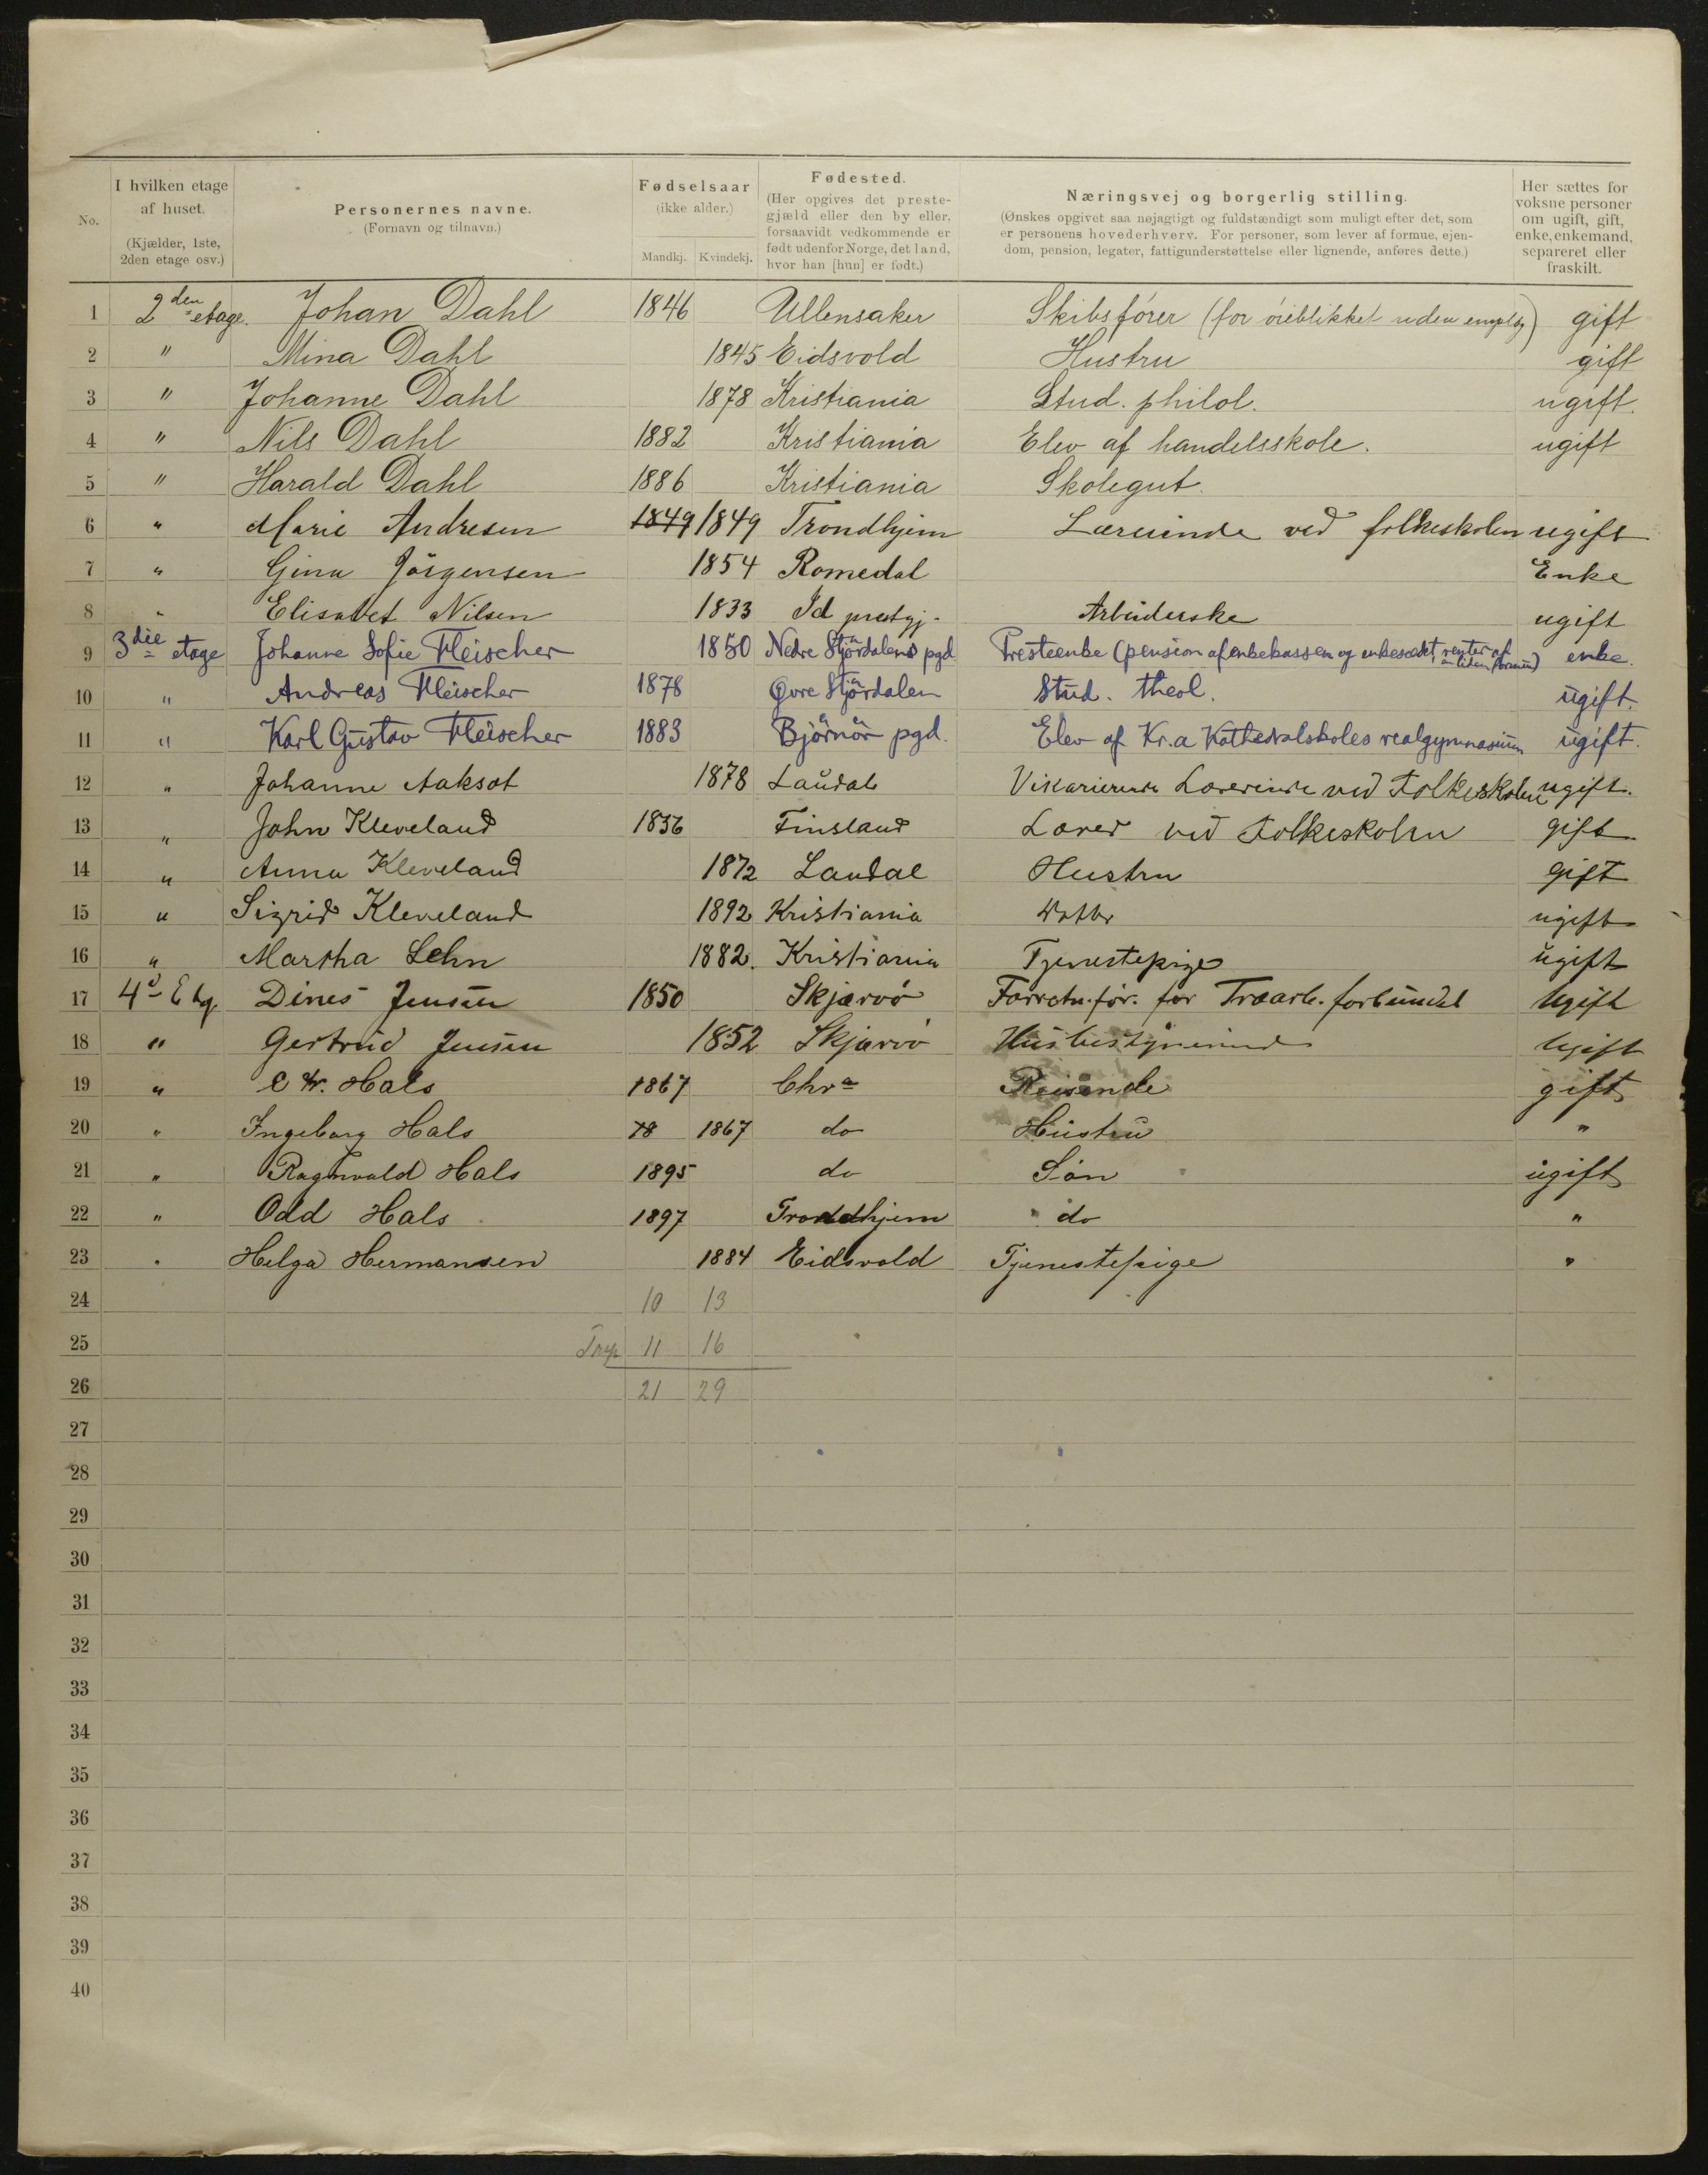 No. I hvilken etage af huset. (Kjælder, 1ste, 2den etage osv.) Personernes navne. (Fornavn og tilnavn.) Fødselsaar (ikke alder.) Mandkj. Kvindekj. Fødested. (Her opgives det prestegjæld eller den by eller, forsaavidt vedkommende er født udenfor Norge, det land, hvor han [hun] er født.) Næringsvej og borgerlig stilling. (Ønskes opgivet saa nøjagtigt og fuldstændigt som muligt efter det, som er personens hovederhverv. For personer, som lever af formue, ejendom, pension, legater, fattigunderstøttelse eller lignende, anføres dette.) Her sættes for voksne personer om ugift, gift, enke, enkemand, separeret eller fraskilt.
1 2den etage. Johan Dahl 1846 Ullensaker Skibsfører (for øieblikket uden empl.) gift
2 " Mina Dahl 1845 Eidsvold Hustru gift
3 " Johanne Dahl 1878 Kristiania Stud. philol. ugift.
4 " Nils Dahl 1882 Kristiania Elev af handelsskole. ugift
5 " Harald Dahl 1886 Kristiania Skolegut.
6 " Marie Andresen 1849 1849 Trondhjem Lærerinde ved folkeskolen ugift
7 " Gina Jörgensen 1854 Romedal Enke
8 " Elisabet Nilsen 1833 Id prestgj. Arbeiderske ugift
9 3die etage Johanne Sofie Fleischer 1850 Nedre Stjørdalens pgd Presteenke (pension af enkekassen og enkesædet, renter af en liden formue) enke.
10 " Andreas Fleischer 1878 Øvre Stjørdalen Stud. theol. ugift.
11 " Karl Gustav Fleischer 1883 Bjørnør pgd. Elev af Kr.a Kathedralskoles realgymnasium ugift.
12 " Johanne Aaksot 1878 Laudal Vikarierende Lærerinde ved Folkeskolen ugift.
13 " John Kleveland 1856 Finsland Lærer ved Folkeskolen gift
14 " Anna Kleveland 1872 Laudal Hustru gift
15 " Sigrid Kleveland 1892 Kristiania Datter ugift
16 " Martha Lehn 1882. Kristiania Tjenestepige ugift
17 4d Etg. Dines Jensen 1850 Skjærvö Forretn.før. for Træarb. forbundet Ugift
18 " Gertrud Jensen 1852 Skjærvö Husbestyrerinde Ugift
19 " C Hals 1867 Chra Reisende gift
20 " Ingeborg Hals 18 1867 do Hustru "
21 " Ragnvald Hals 1895 do Søn ugift
22 " Odd Hals 1897 Trondhjem do "
23 " Helga Hermansen 1884 Eidsvold Tjenestepige "
24 10 13
25 11 16
26 21 29
27
28
29
30
31
32
33
34
35
36
37
38
39
40